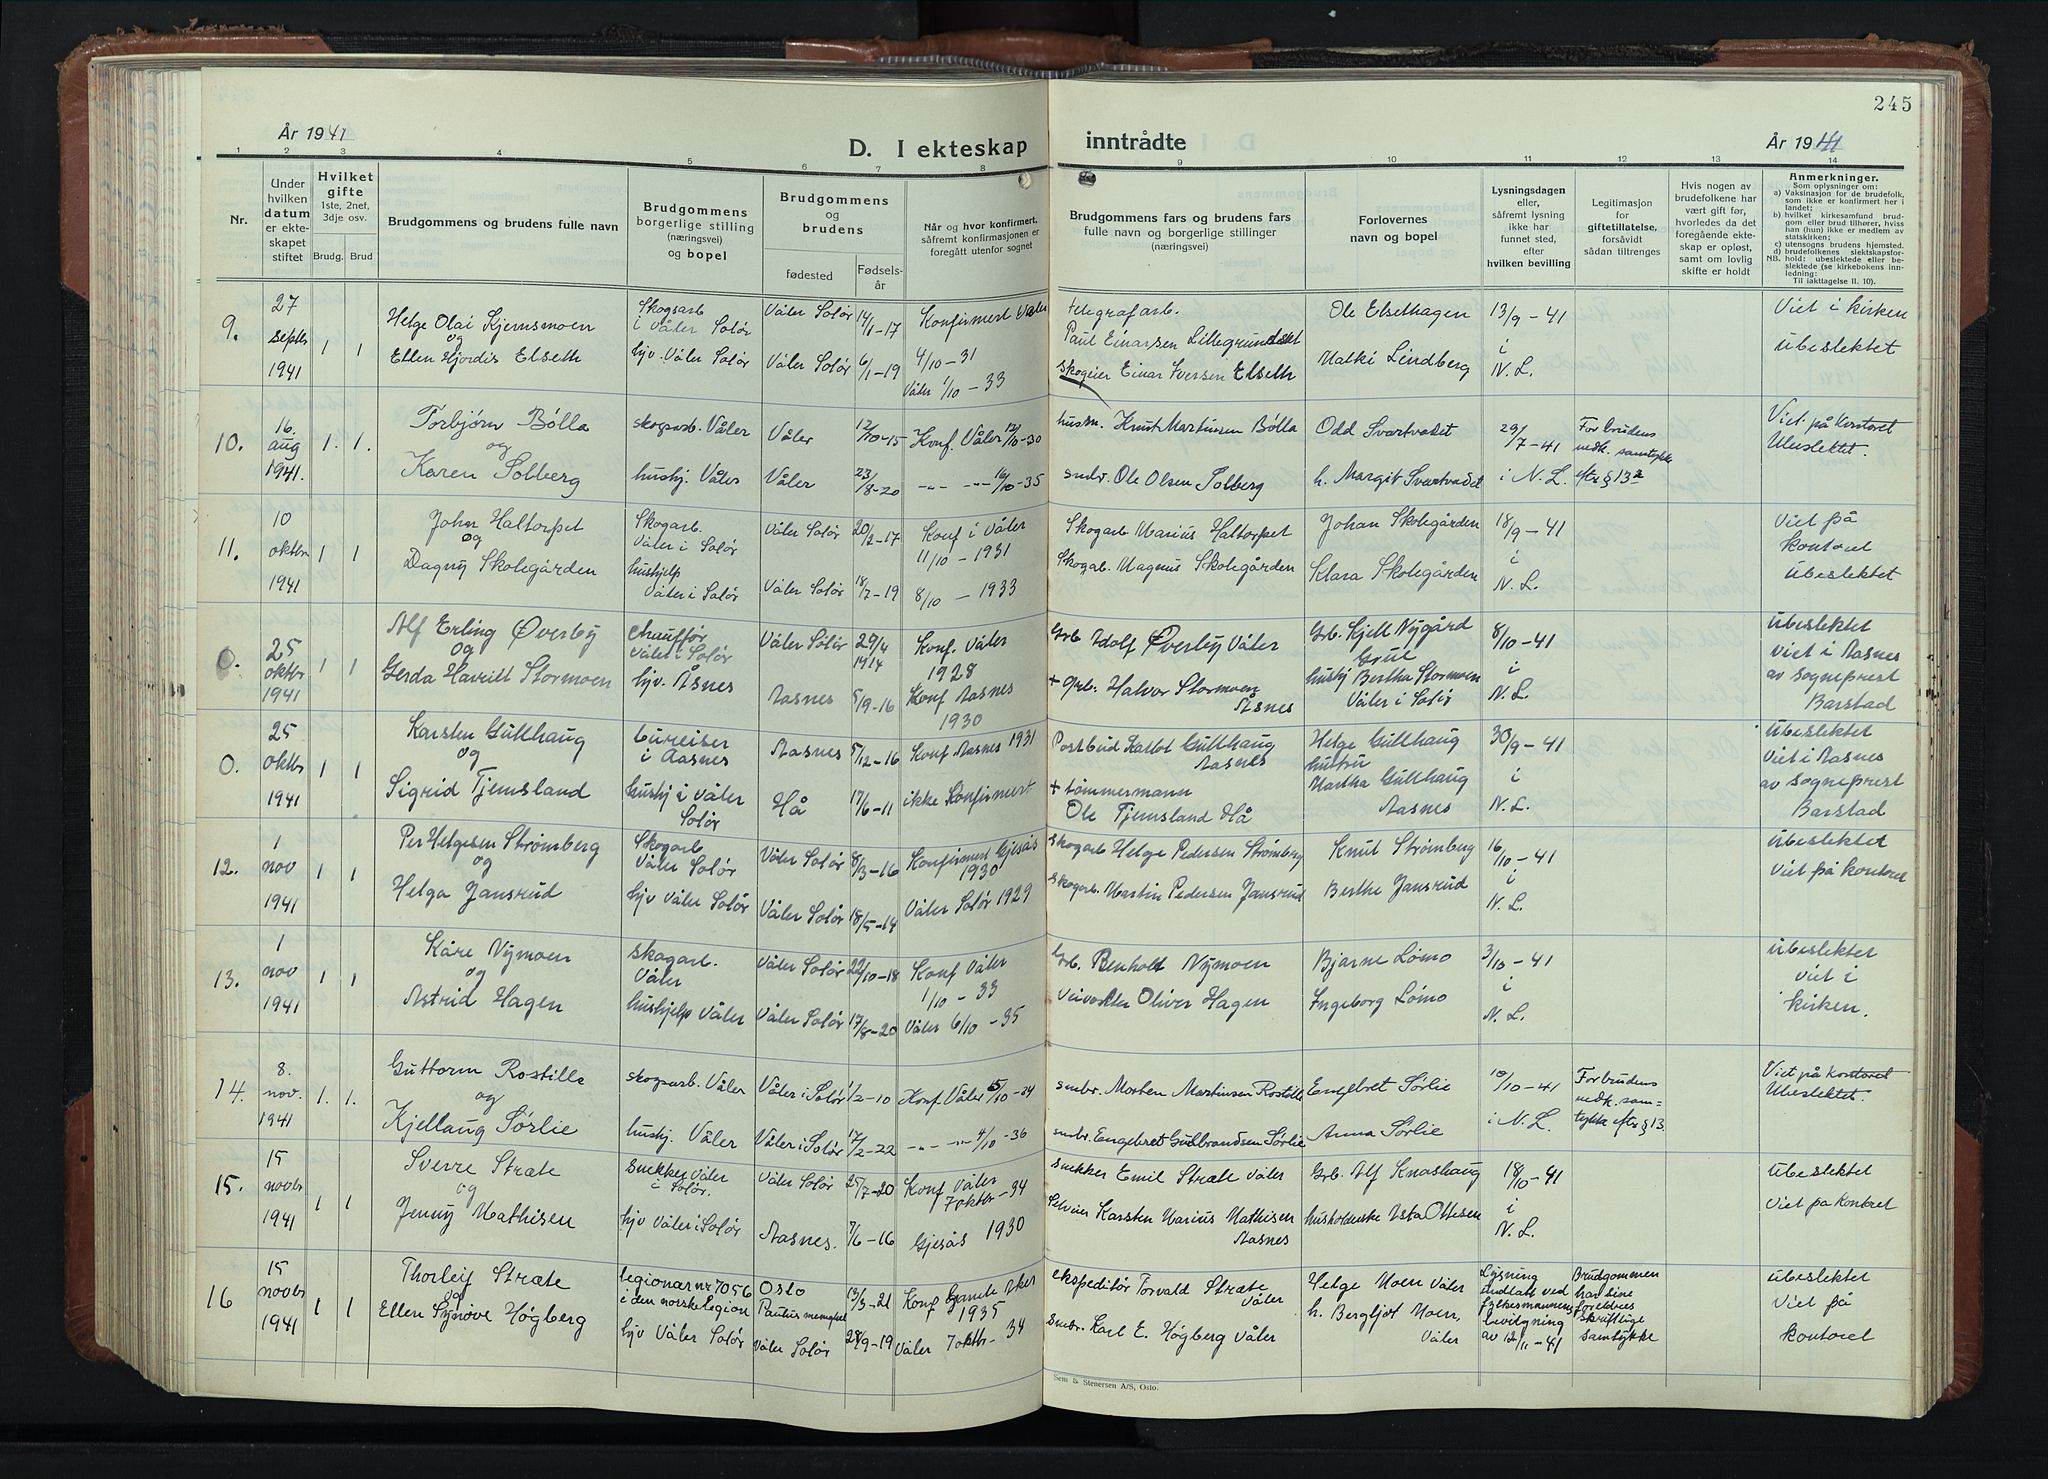 245
År 1941
D. I ekteskap inntrådte
År 1941
1 2 3 4 5 6 7 8 9 10 11 12 13 14
Nr.
Under hvilken datum er ekteskapet stiftet
Hvilket gifte 1ste, 2net, 3dje osv.
Brudg. Brud
Brudgommens og brudens fulle navn
Brudgommens borgerlige stilling (næringsvei) og bopel
Brudgommens og brudens
fødested
Fødselsår
Når og hvor konfirmert, såfremt konfirmasjonen er foregått utenfor sognet
Brudgommens fars og brudens fars fulle navn og borgerlige stillinger (næringsvei)
Forlovernes navn og bopel
Lysningsdagen eller, såfremt lysning ikke har funnet sted, efter hvilken bevilling
Legitimasjon for giftetillatelse, forsåvidt sådan tiltrenges
Hvis nogen av brudefolkene har vært gift før, hvorledes da det foregående ekteskap er opløst, samt om lovlig skifte er holdt
Anmerkninger.
Som oplysninger om:
a) Vaksinasjon for de brudefolk, som ikke er konfirmert her i landet;
b) hvilket kirkesamfund brudgom eller brud tilhører, hviss han (hun) ikke er medlem av statskirken;
c) utensogns brudens hjemsted.
d) brudefolkenes slektskapsforhold: ubeslektede eller beslektede (se kirkebokens innledning:
NB. Til iakttagelse II. 10).
9. 27 septbr 1941 1 1
Helge Olai Kjernsmoen og Ellen Hjordis Elseth
Skogsarb. i Våler Solør
hjv. Våler Solør
Våler Solør 14/1-17
Våler Solør 6/1-19
Konfirmert Våler 4/10-31
Våler 1/10-33
telegrafarb. Paul Einarsen Lillegrundset
skogeier Einar Iversen Elseth
Ole Elsethagen
Malki Lindberg
13/9-41 i N.L.
Viet i kirken
Ubeslektet
10. 16. aug 1941. 1. 1.
Torbjørn Bølla og Karen Solberg
skogsarb. Våler
hushj. Våler
Våler 12/10-15
Våler 23/8-20
Konf. Våler 12/10-30
-"- -"- 16/10-35
husm. Knut Martinsen Bølla
smbr. Ole Olsen Solberg
Odd Svartvadet
h. Margit Svartvadet
29/7-41 i N.L.
For brudens vedk. samtykke efter § 13
Viet på kontoret
Ubeslektet.
11. 10 oktbr 1941 1 1
John Haltorpet og Dagny Skolegården
Skogarb. Våler i Solør
hushjelp Våler i Solør
Våler Solør 20/2-17
Våler Solør 18/7-19
Konf i Våler 11/10-1931
8/10-1933
Skogarb Marius Haltorpet
Skogarb. Magnus Skolegården
Johan Skolegården
Klara Skolegården
18/9-41 i N.L.
Viet på kontoret
Ubeslektet
0. 25 oktbr 1941 1 1
Alf Erling Øverby og Gerda Havrill Stormoen
Chauffør Våler i Solør
hjv. Åsnes
Våler Solør 29/4 1914
Aasnes 5/9-16
Konf. Våler 1928
Konf Aasnes 1930
Grb Adolf Øverby Våler
+ grb. Halvor Stormoen Åsnes
Grb. Kjell Nygård
hushj Bertha Stormoen Våler i Solør
8/10-41 i N.L.
Ubeslektet
Viet i Aasnes av Sogneprest Barstad
0. 25 oktbr 1941 1 1
Karsten Gullhaug og Sigrid Tjemsland
bureiser i Aasnes
hushj i Våler Solør
Aasnes 5/12-16
Hå 17/6-11
Konf Aasnes 1931
ikke Konfirmert
Postbud Karlot Gullhaug Aasnes
+ tømmermann Ole Tjemsland Hå
Helge Gullhaug
hustru Martha Gullhaug Aasnes
30/9-41 i N.L.
Ubeslektet
Viet i Aasnes av Sogneprest Barstad
12. 1 nov 1941 1 1
Per Helgesen Strømberg og Helga Jansrud
Skogarb Våler Solør
hjv Våler Solør
Våler Solør 8/3-16
Våler Solør 18/5-14
Konfirmert Gjesås 1930
Våler Solør 1929
Skogarb Helge Pedersen Strømberg
Skogarb. Martin Pedersen Jansrud
Knut Strømberg
Berthe Jansrud
16/10-41 i N.L.
Ubeslektet
Viet på kontoret
13. 1 nov 1941 1 1
Kåre Nymoen og Astrid Hagen
Skogarb. Våler
hushjelp Våler
Våler Solør 22/10-18
Våler Solør 17/8-20
Konf Våler 1/10-33
Våler 6/10-35
Grb. Benholt Nymoen
Veivokter Oliver Hagen
Bjarne Lømo
Ingeborg Lømo
3/10-41 i N.L.
Ubeslektet
Viet i kirken.
14. 8. nov. 1941 1. 1.
Guttorm Rostille og Kjellaug Sørlie
skogsarb. Våler
hushj. Våler
Våler i Solør 1/2-10
Våler i Solør 17/2-22
Konf. Våler 5/10-24
-"- -"- 4/10-36
smbr. Morten Martinsen Rostille
smbr. Engebret Gulbrandsen Sørlie
Engebret Sørlie
Anna Sørlie
10/10-41 i N.L.
For brudens vedk. samtykke efter § 13
Viet på kontoret
Ubeslektet.
15. 15 novbr 1941 1 1
Sverre Stræte og Jenny Mathisen
Snekker Våler i Solør.
hjv Våler i Solør
Våler Solør 25/7-20
Aasnes. 7/6-16
Konf Våler 7 oktbr-34
Gjesås 1930
Snekker Emil Stræte Våler
Selveier Karsten Marius Mathisen Aasnes
Grb. Alf Knashaug
husholderske Asta Ottesen
18/10-41 i N.L.
Ubeslektet
Viet på kontoret
16 15 novbr 1941 1 1
Thorleif Stræte og Ellen Synøve Høgberg
legionær nr 7056 i den norske Legion
hjv Våler Solør
Oslo Paulus menighet 13/3-21
Våler Solør 28/9-19
Konf Gamle Aker 1935
Våler 7 oktbr-34
ekspeditør Torvald Stræte Våler
Smbr. Karl E. Høgberg Våler
Helge Moen Våler
h. Bergljot Moen, Våler
Lysning undlatt ved fylkesmannens bevilgning av 12/11-41
Brudgommen har sine foreldres skriftlige samtykke
Ubeslektet
Viet på kontoret
Sem & Stenersen A/S, Oslo.